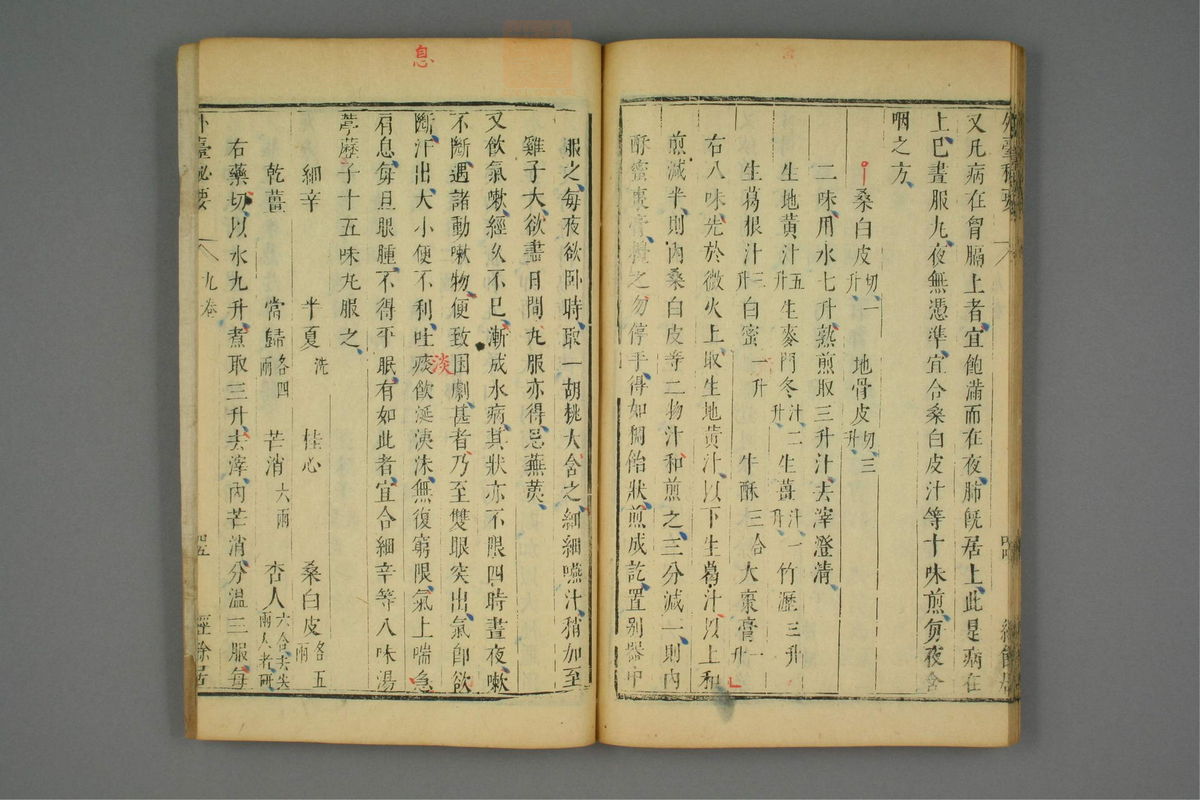 又凡病在胷膈上者宜飽滿而在夜肺旣居上此是病在
上巳晝服九夜無憑準宜合桑白皮汁等十味煎夜含
咽之方
桑白皮切一升 地骨皮切三升
二味用水七升熟煎取三升汁去滓澄清
生地黃汁五升 生麥門冬汁二升 生薑汁一升 竹瀝三升
生葛根汁三升 白蜜一升 牛酥三合 大棗膏一升
右八味先於微火上取生地黃汁以下生葛汁以上和
煎減半則內桑白皮等二物汁和煎之三分減一則內
酥蜜棗膏攪之勿停手得如餳飴狀煎成訖置別器中
息
服之每夜欲卧時取一胡桃大含之細細嚥汁稍加至
雞子大欲晝日間丸服亦得忌蕪荑
又飲氣嗽經久不已漸成水病其狀亦不限四時晝夜嗽
不斷遇諸動嗽物便致困劇甚者乃至雙眼突出氣卽欲
淡
斷汗出大小便不利吐痰飲涎洟沫無復窮限氣上喘急
肩息每旦眼腫不得平眠有如此者宜合細辛等八味湯
葶藶子十五味丸服之
細辛 半夏洗 桂心 桑白皮各五兩
乾薑 當歸各四兩 芒消六兩 杏人六合去尖兩人者研
右藥切以水九升煮取三升去滓內芒消分溫三服每
外臺秘要 九卷 四五 經餘居